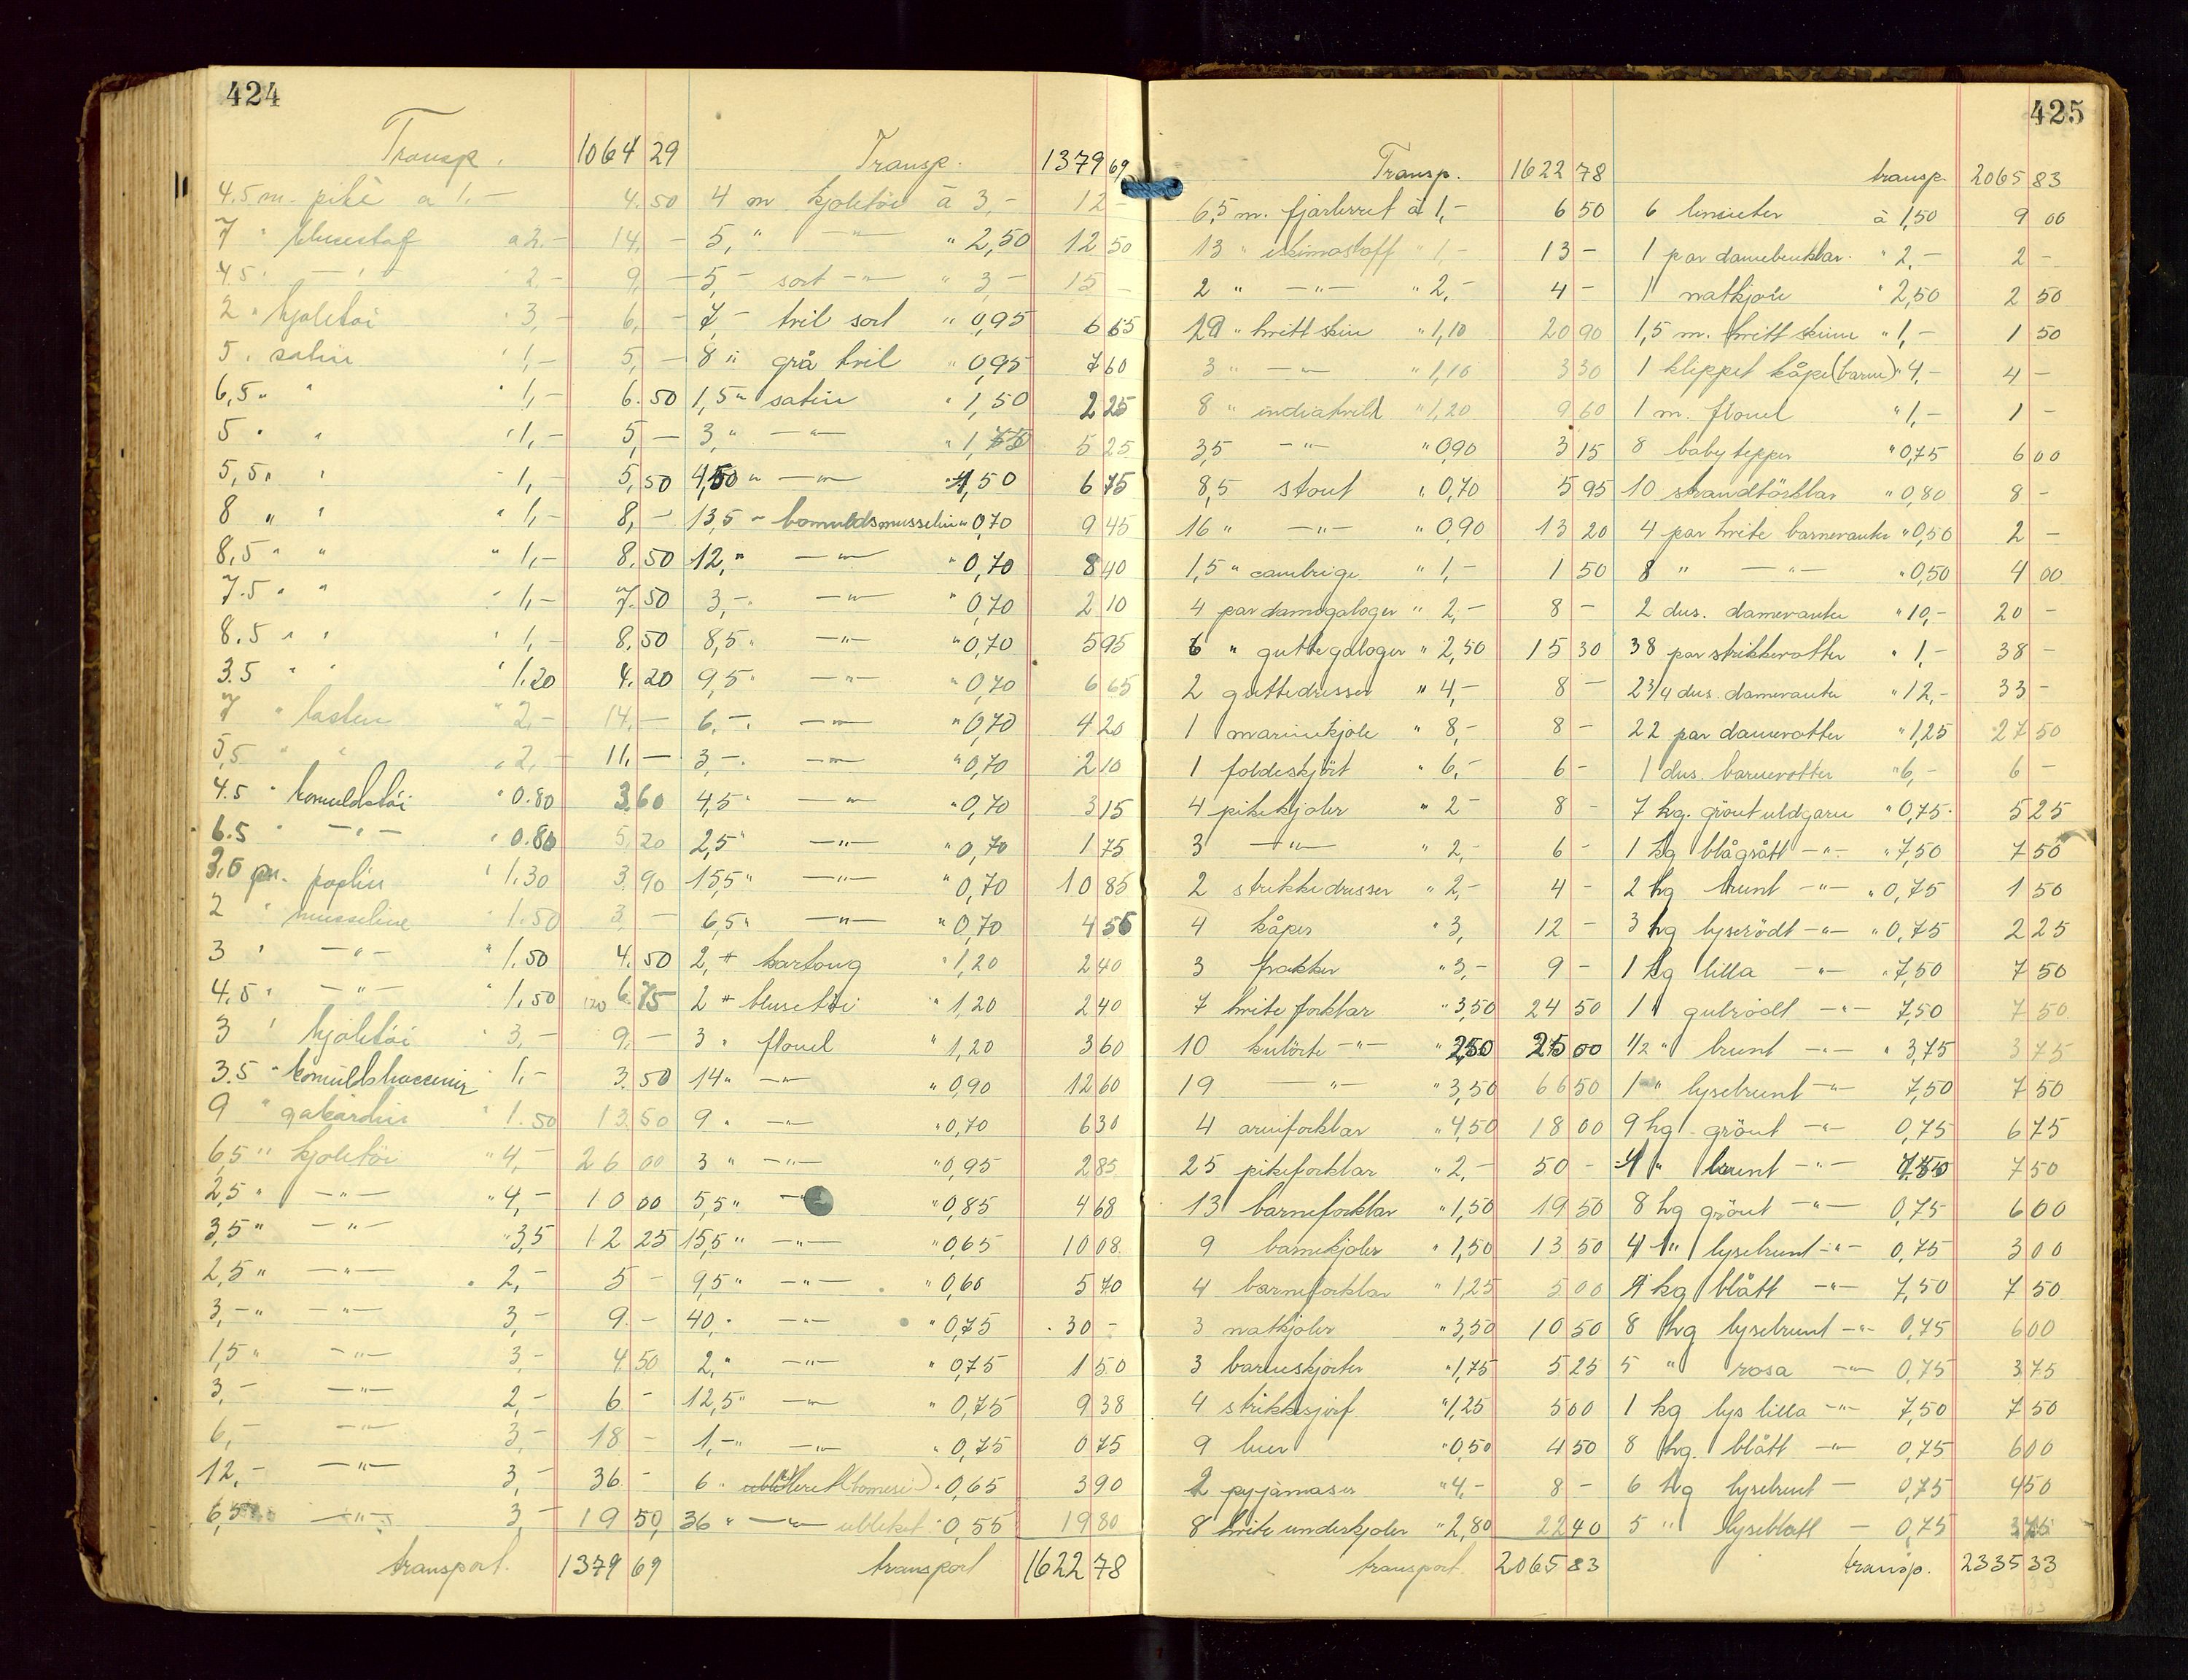 424
Transp. 1064 29
4.5 m. piké a 1,- 4.50
7 " blusestof a 2,- 14,-
4.5 " -"- " 2,- 9,-
2 " kjoletöi " 3,- 6,-
5 " satin " 1,- 5,-
6,5 " " " 1,- 6.50
5 " " " 1,- 5,-
5,5 " " " 1,- 5,50
8 " " " 1,- 8,-
8,5 " " " 1,- 8.50
7.5 " " " 1,- 7.50
8.5 " " " 1,- 8.50
3.5 " " " 1.20 4.20
7 " lasten " 2,- 14,-
5,5 " " " 2,- 11,-
4.5 " bomuldstöi " 0.80 3.60
6.5 " -"- " 0.80 5.20
3,0 m. poplin " 1.30 3.90
2 " musseline " 1.50 3,-
3 " -"- " 1.50 4.50
4.5 " -"- " 1.50 6.75
3 " kjoletöi " 3,- 9,-
3.5 " 1,- 3.50
9 " gabardin " 1.50 13.50
6,5 " kjoletöi " 4,- 26 00
2,5 " -"- " 4,- 10 00
3,5 " -"- " 3,5 12 25
2,5 " -"- " 2,- 5 -
3,- " -"- 3,- 9 -
1,5 " -"- 3,- 4 50
3,- -"- 2,- 6 -
6,- -"- 3,- 18 -
12,- -"- 3,- 36 -
6,5 -"- 3 - 19 50
transport. 1379 69
Transp. 1379 69
4 m kjoletöi à 3,- 12 -
5, " -"- " 2,50 12 50
5,- sort -"- " 3,- 15 -
7,- tvil sort " 0,95 6 65
8 " grå tvil " 0,95 7 60
1,5 " satin " 1,50 2 25
3, " -"- " 1,75 5 25
4,50 " -"- " 1,50 6 75
13,5 - bomuldsmusselin " 0,70 9 45
12, " -"- " 0,70 8 40
3,- " -"- " 0,70 2 10
8,5 " -"- " 0,70 5 95
9,5 " -"- " 0,70 6 65
6,- " -"- " 0,70 4 20
3,- " -"- " 0,70 2 10
4,5 " -"- " 0,70 3 15
2,5 " -"- " 0,70 1 75
15,5 " -"- " 0,70 10 85
6,5 " -"- " 0,70 4 55
2, " kartong " 1,20 2 40
2 " blusetöi " 1,20 2 40
3 " flonel " 1,20 3 60
14 " -"- " 0,90 12 60
9 " -"- " 0,70 6 30
3 " -"- " 0,95 2 85
5,5 " -"- " 0,85 4 68
15,5 " -"- " 0,65 10 08
9,5 " -"- " 0,60 5 70
40, " -"- " 0,75 30 -
2, " -"- " 0,75 1 50
12,5 " -"- " 0,75 9 38
1,- " -"- " 0,75 0 75
6 " " 0,65 3 90
36 " -"- ubleket " 0,55 19 80
transport 1622 78
425
Transp. 1622 78
6,5 m. fjærlerret à 1,- 6 50
13 " eskimostoff " 1,- 13 -
2 " -"- " 2,- 4 -
19 " hvitt skin " 1,10 20 90
3 " -"- " 1,10 3 30
8 " indiatvill " 1,20 9 60
3,5 -"- " 0,90 3 15
8,5 stout " 0,70 5 95
16 " -"- " 0,90 13 20
1,5 " cambrige " 1,- 1 50
4 par damegaloger " 2,- 8 -
6 " guttegaloger " 2,50 15 30
2 guttedresser " 4,- 8 -
1 marinekjole " 8,- 8 -
1 foldeskjört " 6,- 6 -
4 pikekjoler " 2 - 8 -
3 -"- " 2,- 6 -
2 strikkedresser " 2,- 4 -
4 kåper " 3, 12 -
3 frakker " 3,- 9 -
7 hvite forklær " 3,50 24 50
10 kulörte -"- " 2,50 25 00
19 -"- " 3,50 66 50
4 " 4,50 18 00
25 pikeforklær " 2,- 50 -
13 barneforklær " 1,50 19 50
9 barnekjoler " 1,50 13 50
4 barneforklær " 1,25 5 00
3 natkjoler " 3,50 10 50
3 barneskjorter " 1,75 5 25
4 strikkesjerf " 1,25 5 00
9 luer " 0,50 4 50
2 pyjamaser " 4,- 8 -
8 hvite underkjoler " 2,80 22 40
transport. 2065 83
transp. 2065 83
6 à 1,50 9 00
1 par damebenklær. " 2,- 2 -
1 natkjole " 2,50 2 50
1,5 m. hvitt skinn " 1,- 1 50
1 klippet kåpe (barne) " 4,- 4 -
1 m. flonel " 1,- 1 -
8 babytepper " 0,75 6 00
10 strandtörklær " 0,80 8 -
4 par hvite barnevanter " 0,50 2 -
8 " -"- " 0,50 4 00
2 dus. damevanter " 10,- 20 -
38 par strikkevotter " 1,- 38 -
2 3/4 dus. damevanter " 12,- 33 -
22 par damevotter " 1,25 27 50
1 dus. barnevotter " 6,- 6 -
7 hg. grönt uldgarn " 0,75 5 25
1 kg blågrått -"- " 7,50 7 50
2 hg brunt -"- " 0,75 1 50
3 hg lyserödt -"- " 0,75 2 25
1 kg lilla -"- " 7,50 7 50
1 " gulrödt -"- 7,50 7 50
1/2 " brunt -"- " 3,75 3 75
1 " lysebrunt -"- 7,50 7 50
9 hg grönt -"- 0,75 6 75
1 " brunt -"- 7.50 7 50
8 hg grönt -"- 0,75 6 00
4 " lysebrunt -"- 0,75 3 00
1 kg blått -"- 7,50 7 50
8 hg lysebrunt -"- 0,75 6 00
5 " rosa -"- 0,75 3 75
1 kg lys lilla -"- 7,50 7 50
8 hg. blått -"- 0,75 6 00
6 hg lysebrunt - 0,75 4 50
5 " lyseblått - 0,75 3 75
transp. 2335 33